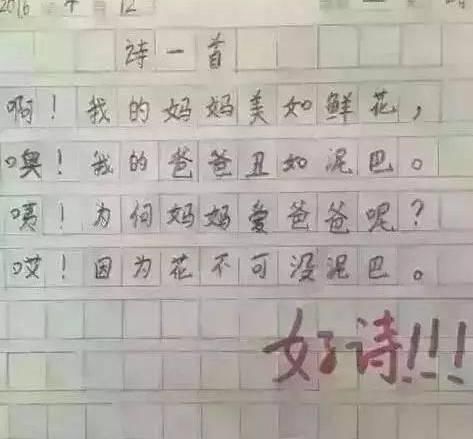 2016 年 12
诗一首
啊！我的妈妈美如鲜花，
噢！我的爸爸丑如泥巴。
咦！为何妈妈爱爸爸呢？
哎！因为花不可没泥巴。
好诗!!!